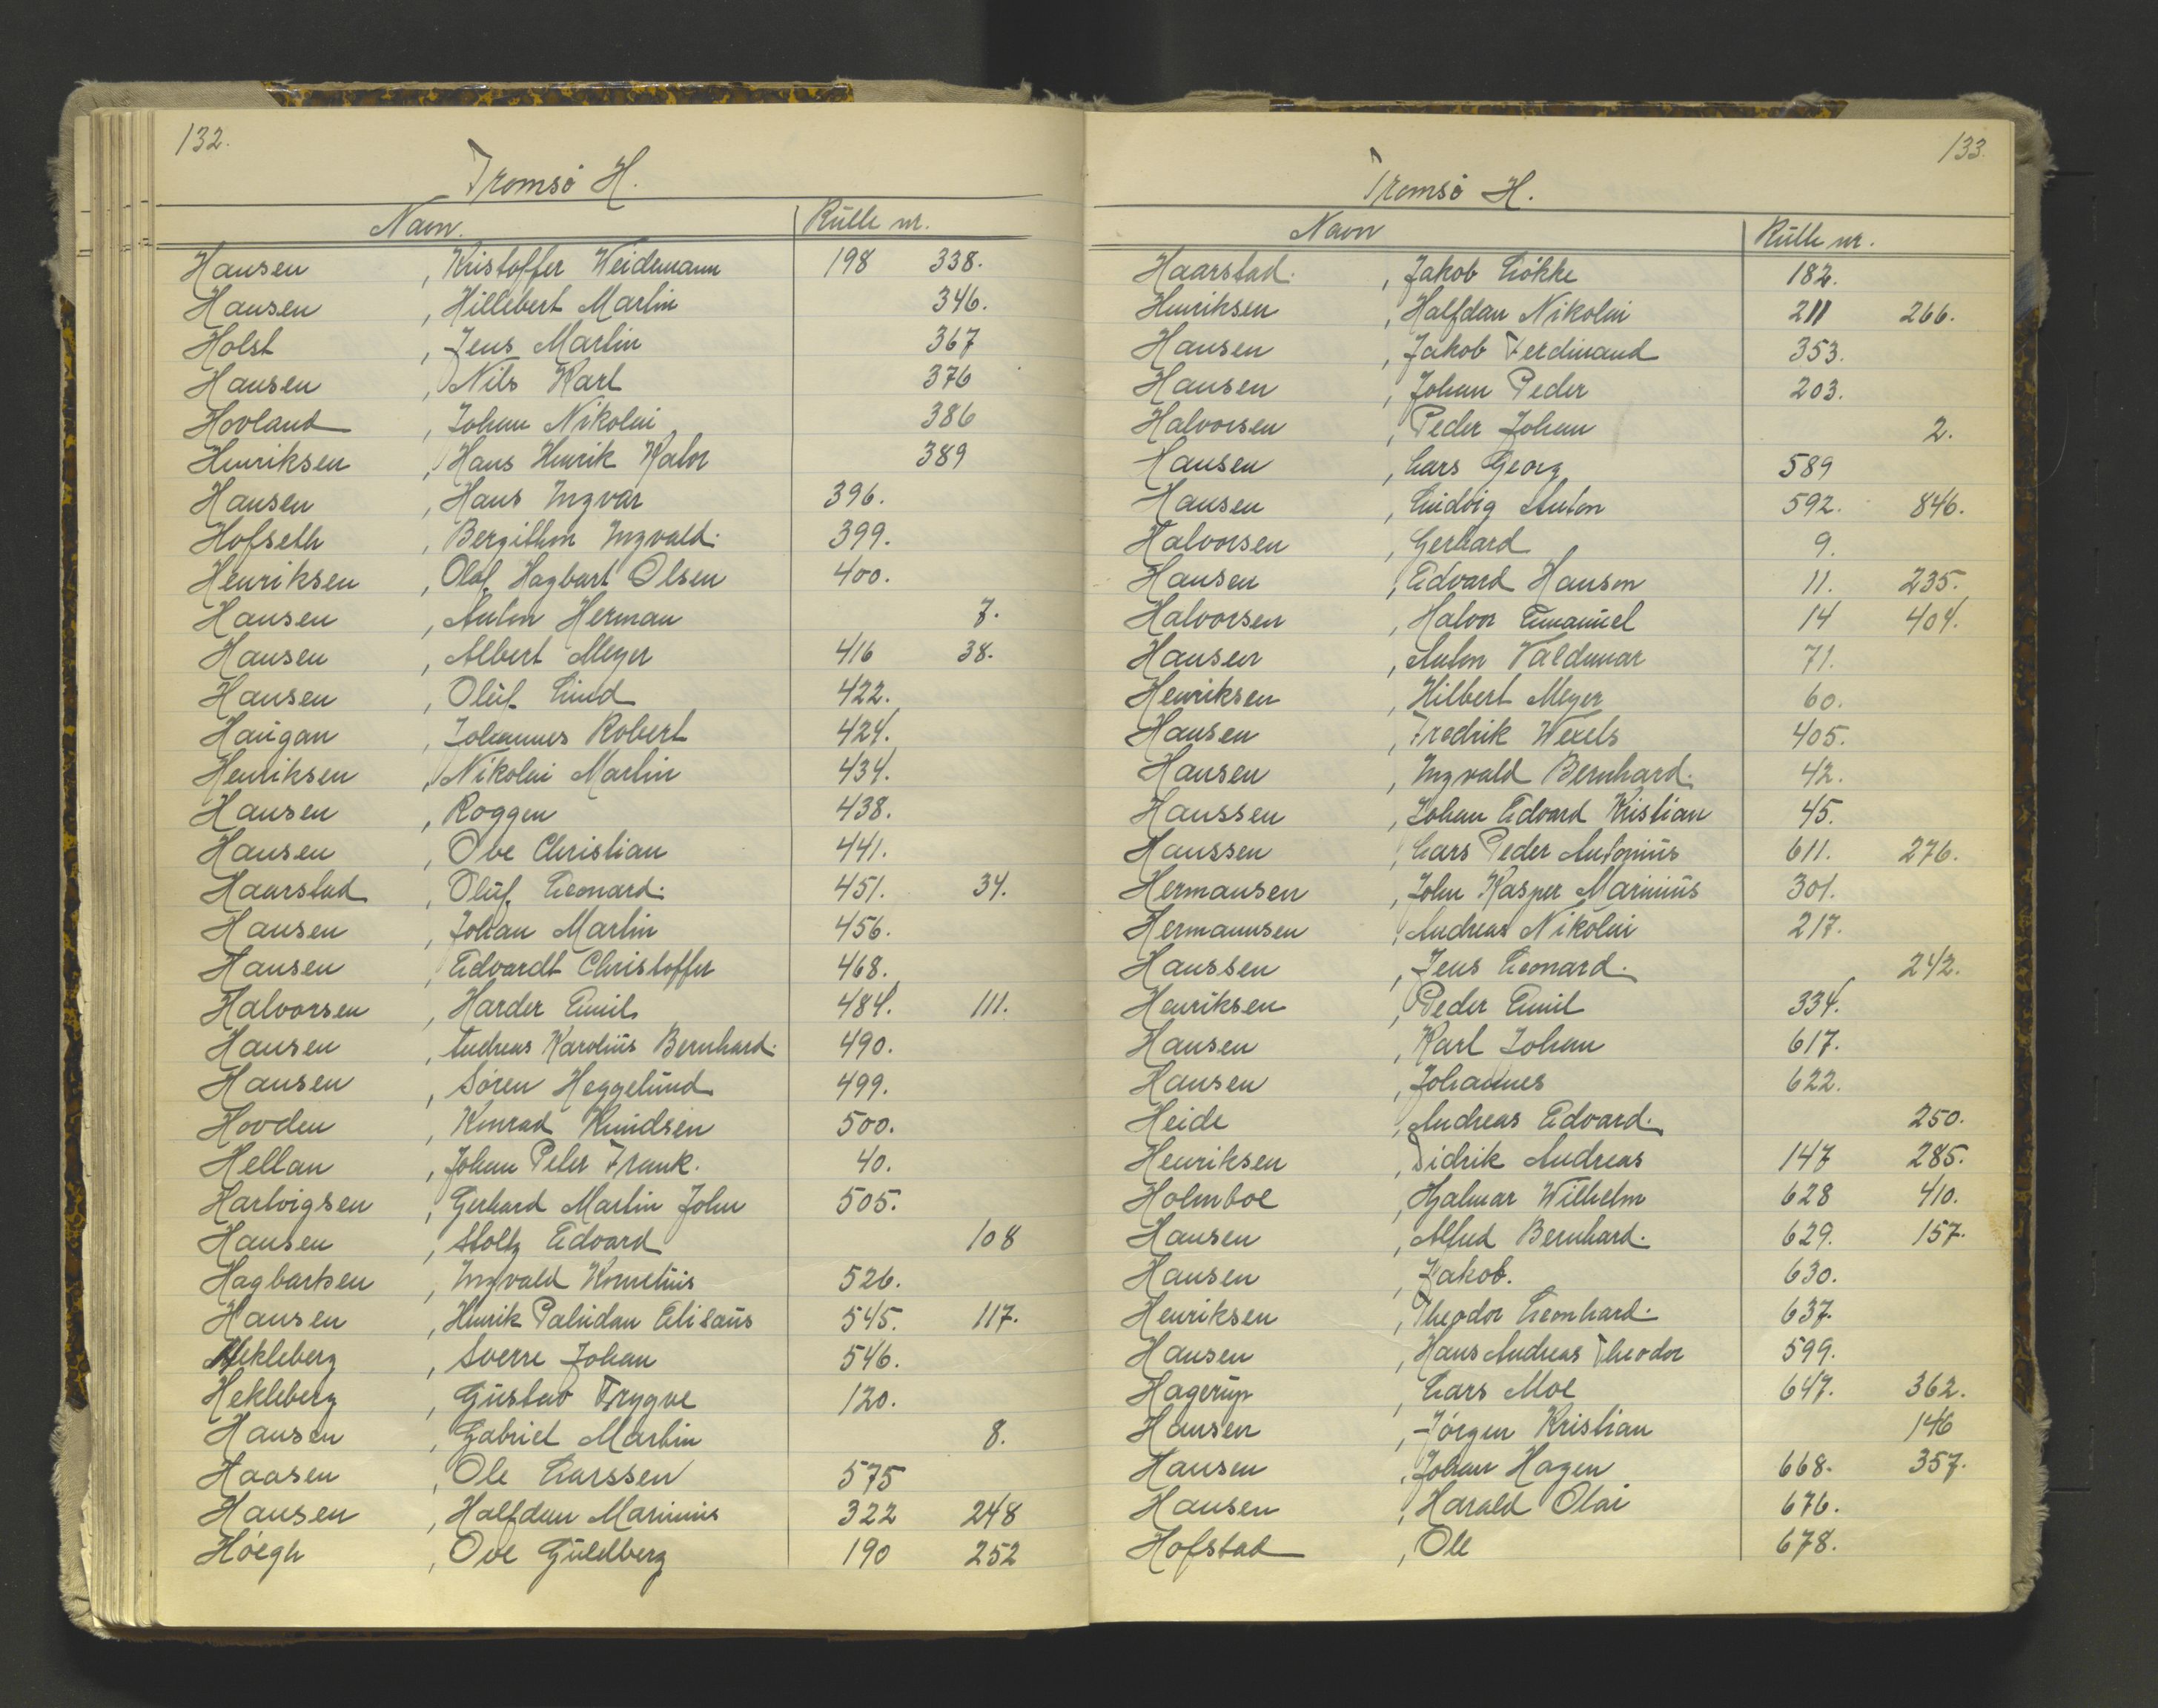 132.
Tromsø H.
Navn. Rulle nr.
Hansen , Kristoffer Weidemann 198 338.
Hansen , Hillebert Martin 346.
Holst , Jens Martin 367
Hansen , Nils Karl 376
Hovland , Johan Nikolai 386
Henriksen , Hans Henrik Kalor 389
Hansen , Hans Ingvar 396.
Hofseth , Bergithon Ingvald. 399.
Henriksen , Olaf Hagbart Olsen 400.
Hansen , Anton Herman 7.
Hansen , Albert Meyer 416 38.
Hansen , Oluf Lind 422.
Haugan , Johannes Robert 424.
Henriksen , Nikolai Martin 434.
Hansen , Roggen 438.
Hansen , Ove Christian 441.
Haarstad , Oluf Leonard. 451. 34.
Hansen , Johan Martin 456.
Hansen , Edvardt Christoffer 468.
Halvorsen , Harder Emil 484. 111.
Hansen , Andreas Karolius Bernhard. 490.
Hansen , Søren Heggelund 499.
Hovden , Konrad Knudsen 500.
Hellan , Johan Peter Frank. 40.
Hartvigsen , Gerhard Martin John 505.
Hansen , Stoltz Edvard 108
Hagbartsen , Ingvald Kornelius 526.
Hansen , Henrik Paludan Elisæus 545. 117.
Hekleberg , Sverre Johan 546.
Hekleberg , Gustav Trygve 120.
Hansen , Gabriel Martin 8.
Haasen , Ole Larssen 575
Hansen , Halfdan Marinius 322 248
Høegh , Ove Guldberg 190 252
133.
Tromsø H.
Navn Rulle nr.
Haarstad. , Jakob Løkke 182.
Henriksen , Halfdan Nikolai 211 266.
Hansen , Jakob Ferdinand 353.
Hansen , Johan Peder 203.
Halvorsen , Peder Johan 2.
Hansen , Lars Georg 589
Hansen , Ludvig Anton 592. 846.
Halvorsen , Gerhard 9.
Hansen , Edvard Hanson 11. 235.
Halvorsen , Halvor Emanuel 14 404.
Hansen , Anton Valdemar 71.
Henriksen , Hilbert Meyer 60.
Hansen , Fredrik Wexels 405.
Hansen , Ingvald Bernhard. 42.
Hanssen , Johan Edvard Kristian 45.
Hanssen , Lars Peder Antonius 611. 276.
Hermansen , John Kasper Marinius 301.
Hermannsen , Andreas Nikolai 217.
Hanssen , Jens Leonard. 242.
Henriksen , Peder Emil 334.
Hansen , Karl Johan 617.
Hansen , Johannes 622.
Heide , Andreas Edvard. 250.
Henriksen , Didrik Andreas 147 285.
Holmboe , Hjalmar Wilhelm 628 410.
Hansen , Alfred Bernhard. 629. 157.
Hansen , Jakob. 630.
Henriksen , Theodor Leonhard. 637.
Hansen , Hans Andreas Theodor 599.
Hagerup , Lars Moe 647. 362.
Hansen , Jørgen Kristian 146
Hansen , Johan Hagen 668. 357.
Hansen , Harald Olai 676.
Hofstad , Ole 678.